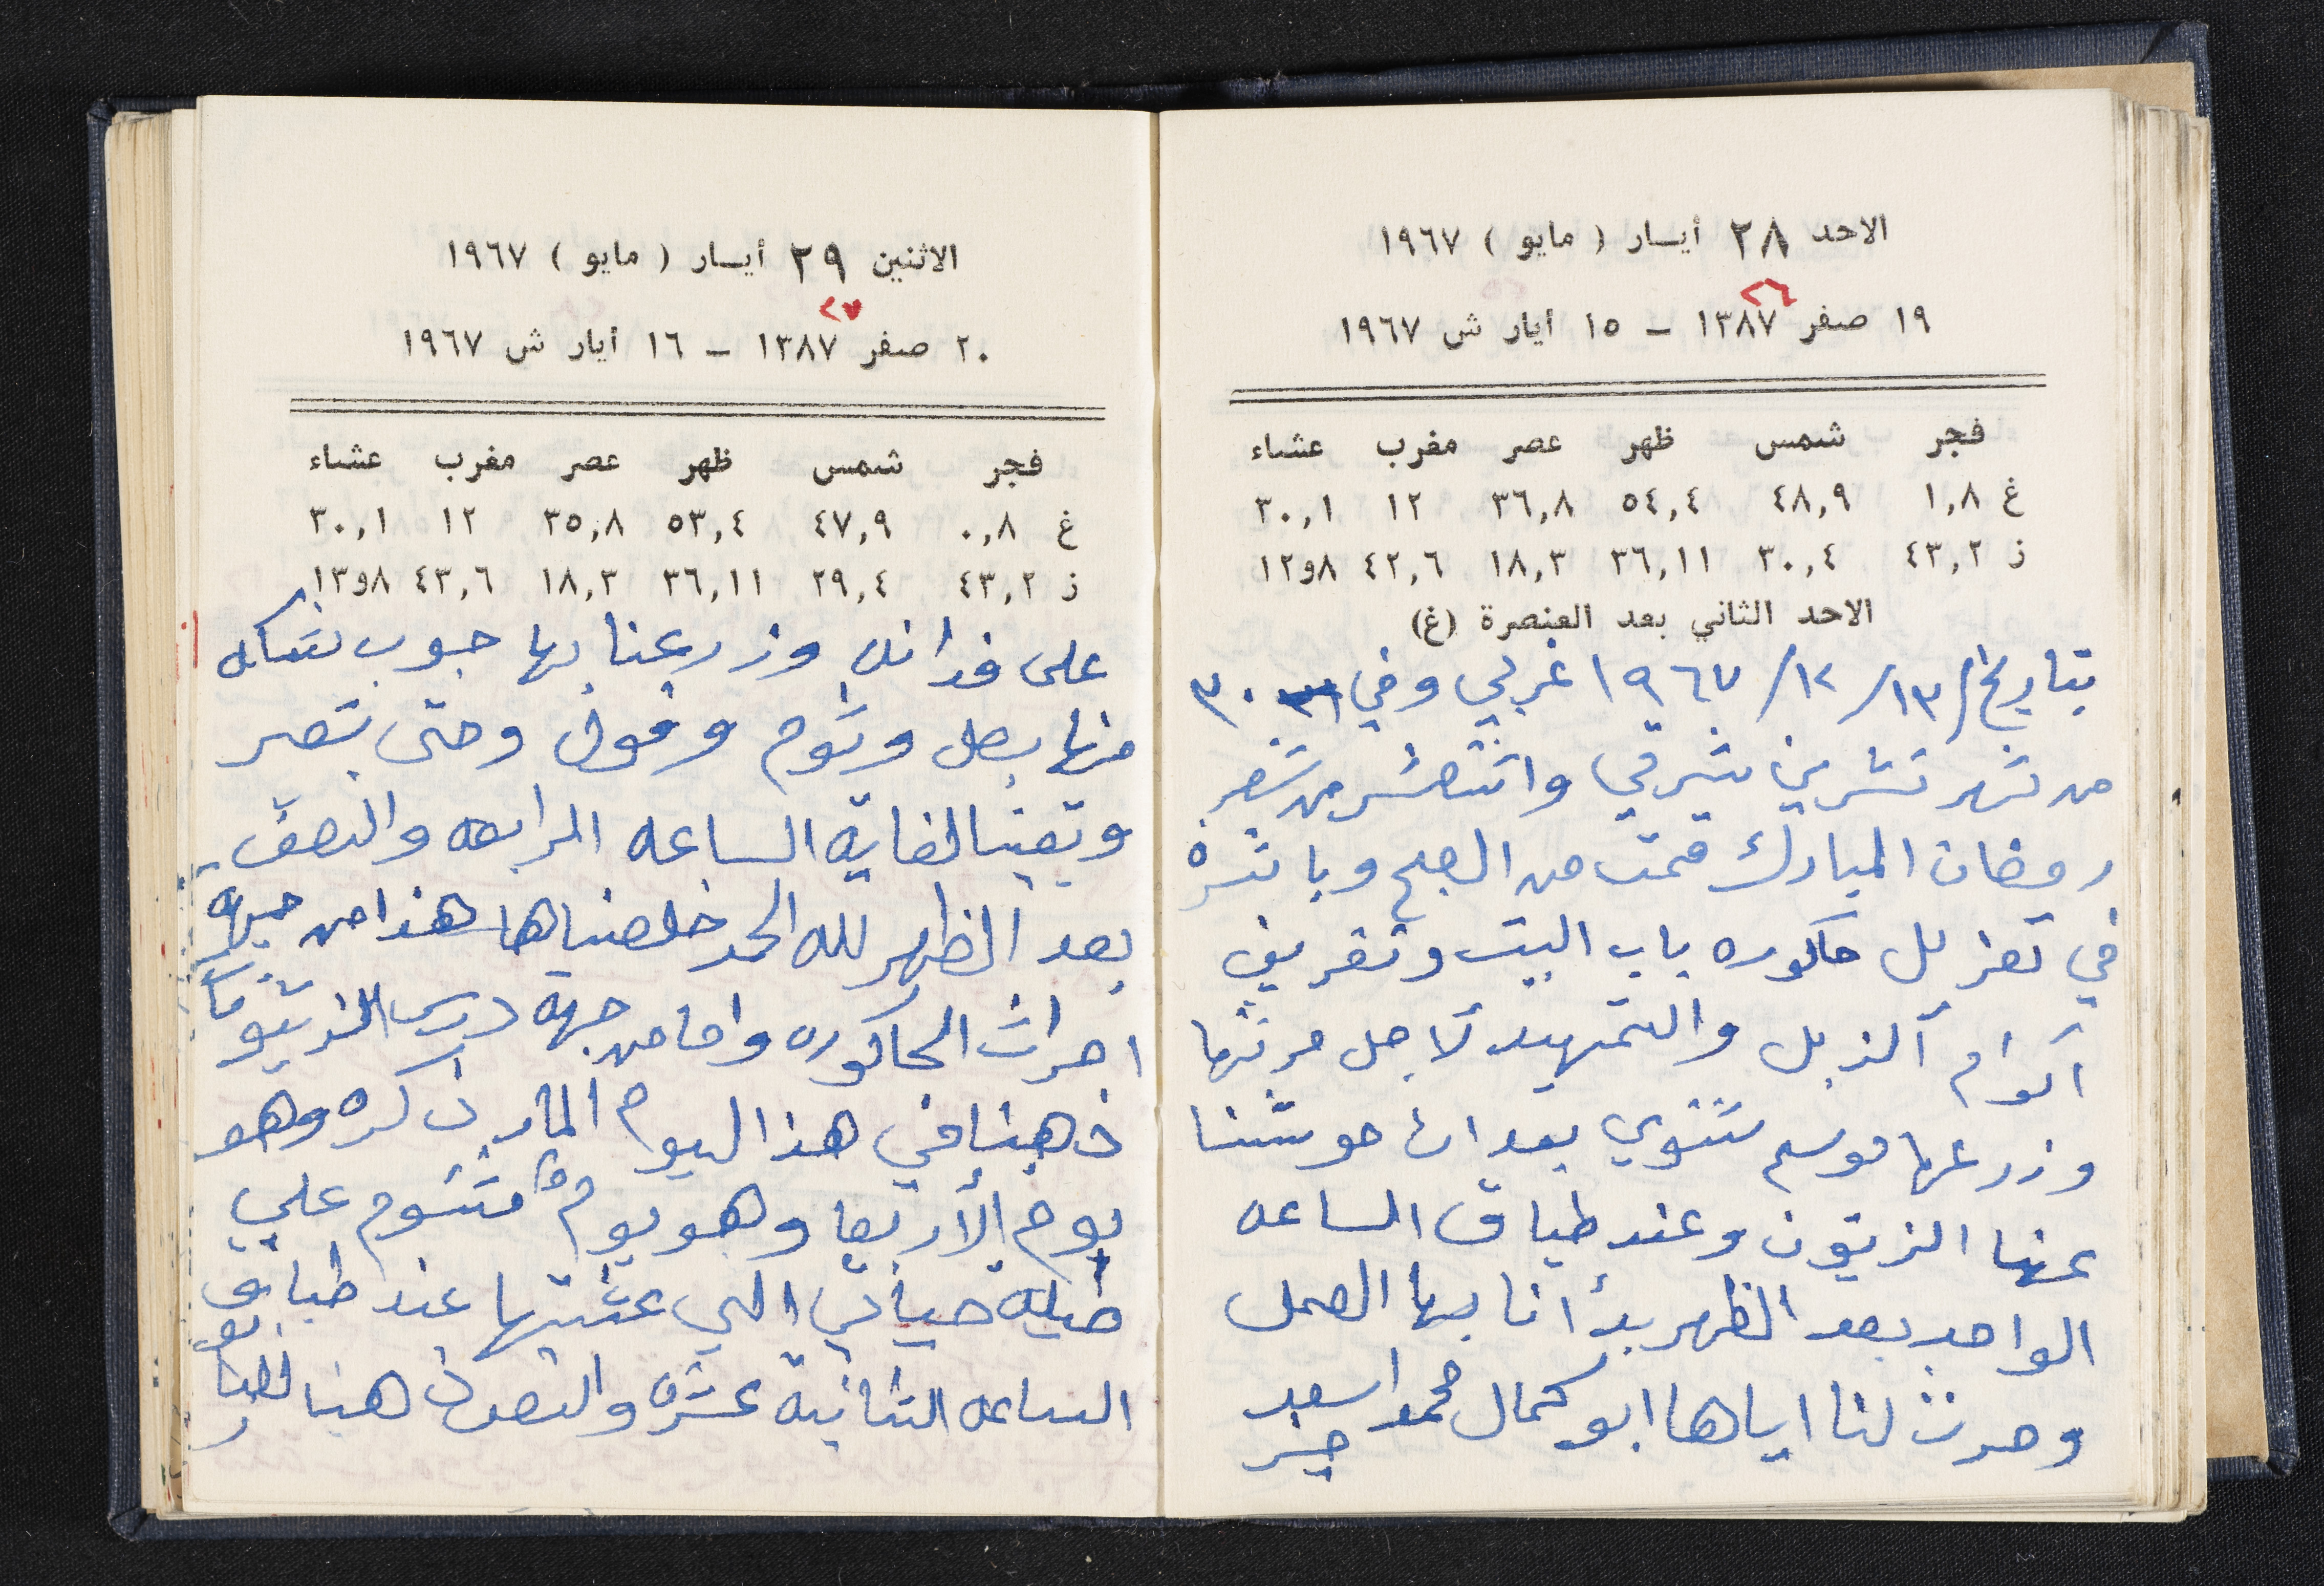 الاحد ٢٨ أيـار ( مايو ) ١٩٦٧
٢٦
١٩ صفر ١٣٨٧ – ١٥ أيار ش ١٩٦٧
فجر شمس ظهر عصر مغرب عشاء
غ ١,٨ ٤٨,٩ ٥٤,٤ ٣٦,٨ ١٢ ٣٠,١
ز ٤٣,٢ ٣٠,٤ ٣٦,١١ ١٨,٣ ٤٢,٦ ٨و١٢
الاحد الثاني بعد العنصرة (غ)
بتاريخ / ١٣/ ١٢/ ١٩٦٧ غربي وفي ٣٠
من شهر تشرين شرقي واثنعشر من شهر
رمضان المبارك قمت من الصبح وباشرة
في تعزيل حاكوره باب البيت وتفريق
اكوام الزبل والتمهيد لاجل حرثها
وزرعها موسم شتوي بعد ان حوشنا
عنها الزيتون وعند طباق الساعه
الواحد بعد الظهر بدأنا بها العمل
وحرث لنا اياها ابو كمال محمد اسعد
الاثنين ٢٩ أيـار ( مايو ) ١٩٦٧
٢٧
٢٠ صفر ١٣٨٧ – ١٦ أيار ش ١٩٦٧
فجر شمس ظهر عصر مغرب عشاء
غ ٠,٨ ٤٧,٩ ٥٣,٤ ٣٥,٨ ١٢ ٣٠,١
ز ٤٣,٢ ٢٩,٤ ٣٦,١١ ١٨,٣ ٤٣,٦ ٨و١٣
على فدانه وزرعنا بها حبوب شكله
منها بصل وثوم وفول وحتى بتصير
وبقينا لغاية الساعه الرابعه والنصف
بعد الظهر لله الحمد خلصناها هذا من جهة
احراث الحاكوره واما من جهة درس الزيتون
ذهبنا في هذا اليوم المار ذكره وهو
يوم الأربعا وهو يوم مشئوم علي
طيلة حياتي الي عشتها عند طباق
الساعه الثانية عشره والنصف هنا